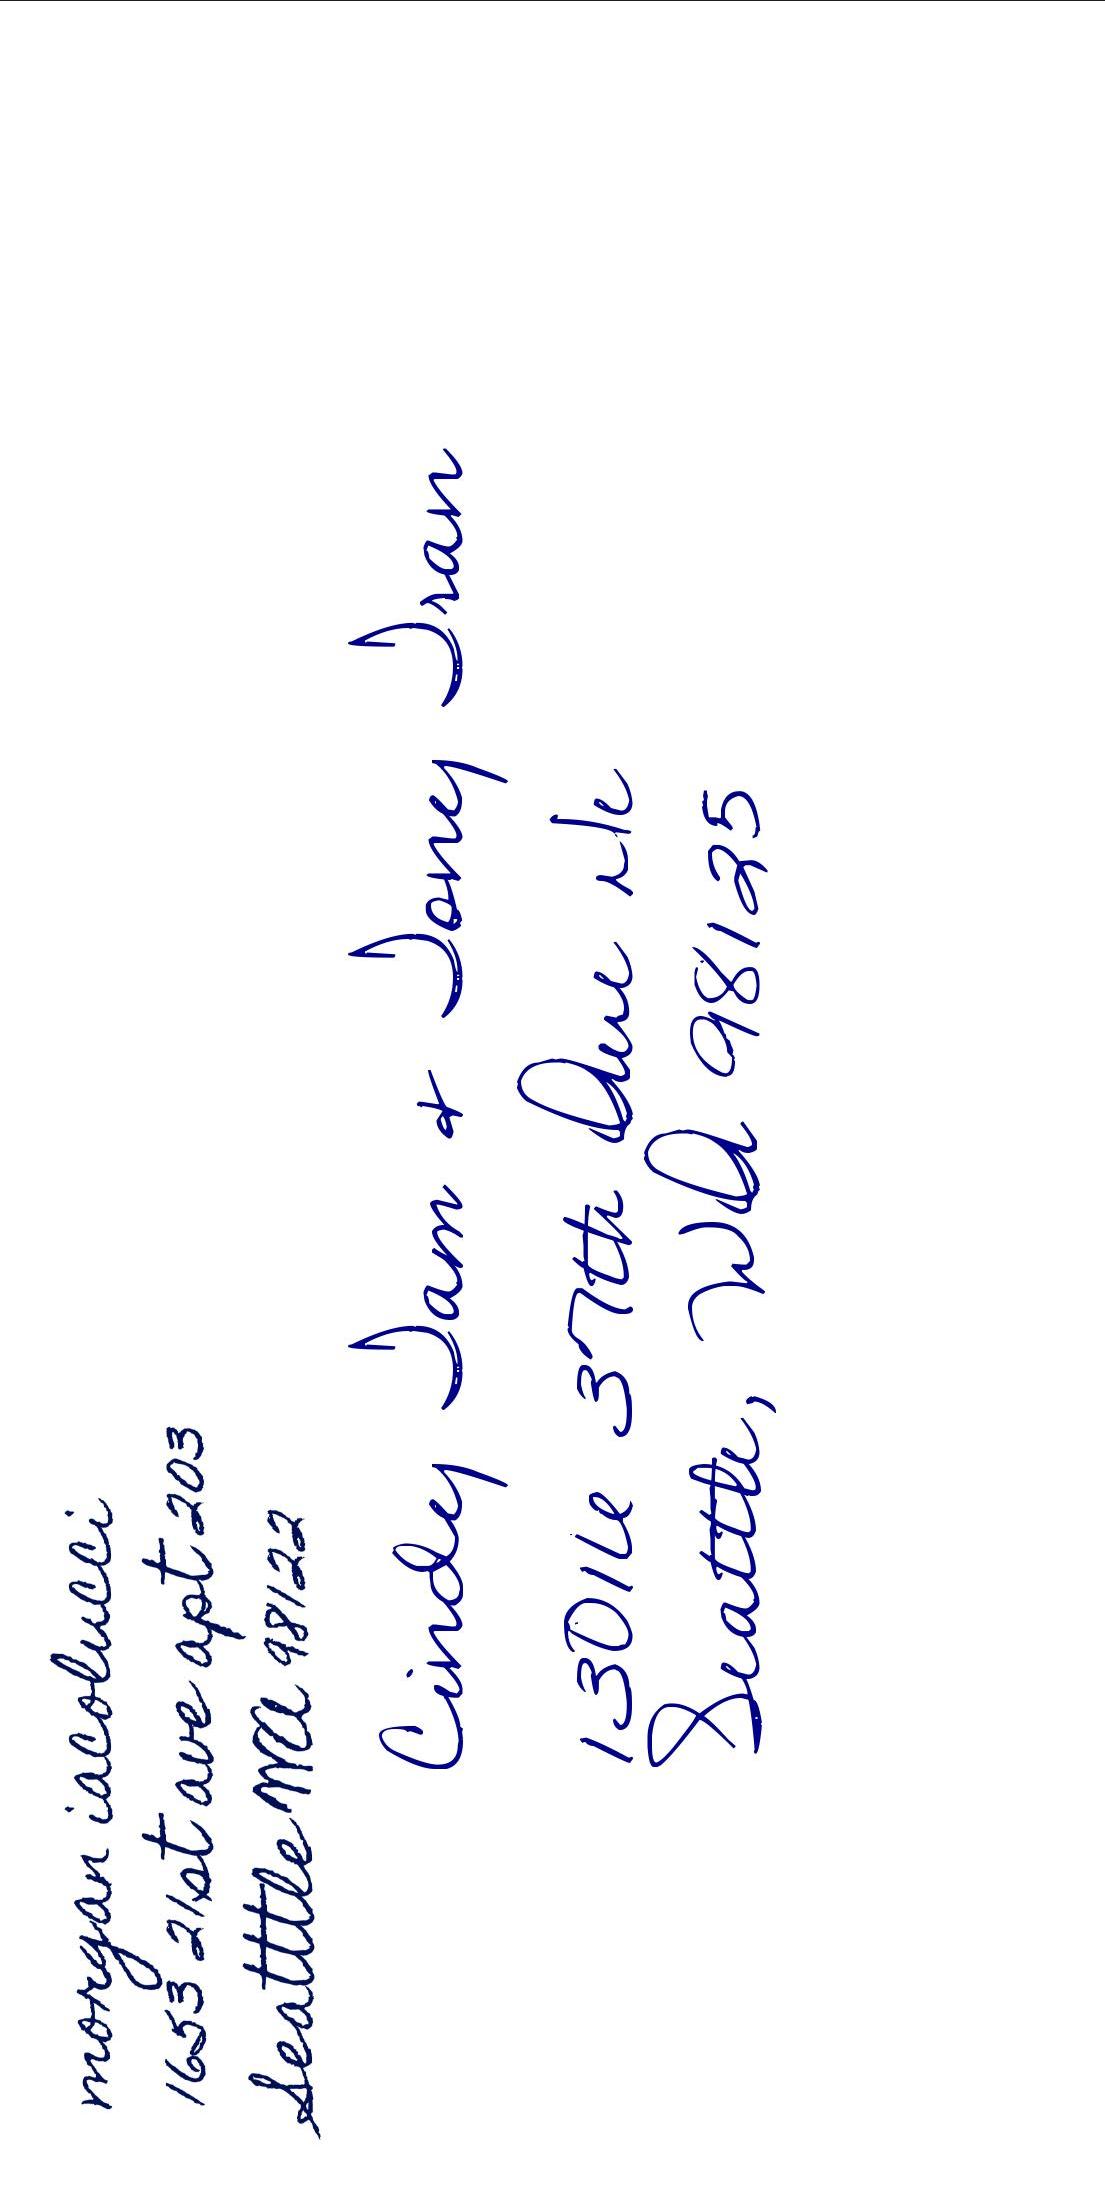 morgan iacolucci
1653 21st ave apt 203
Seatttle WA 98122
Cindy Tam & Toney Tran
13016 37th Ave Ne
Seattle, WA 98125